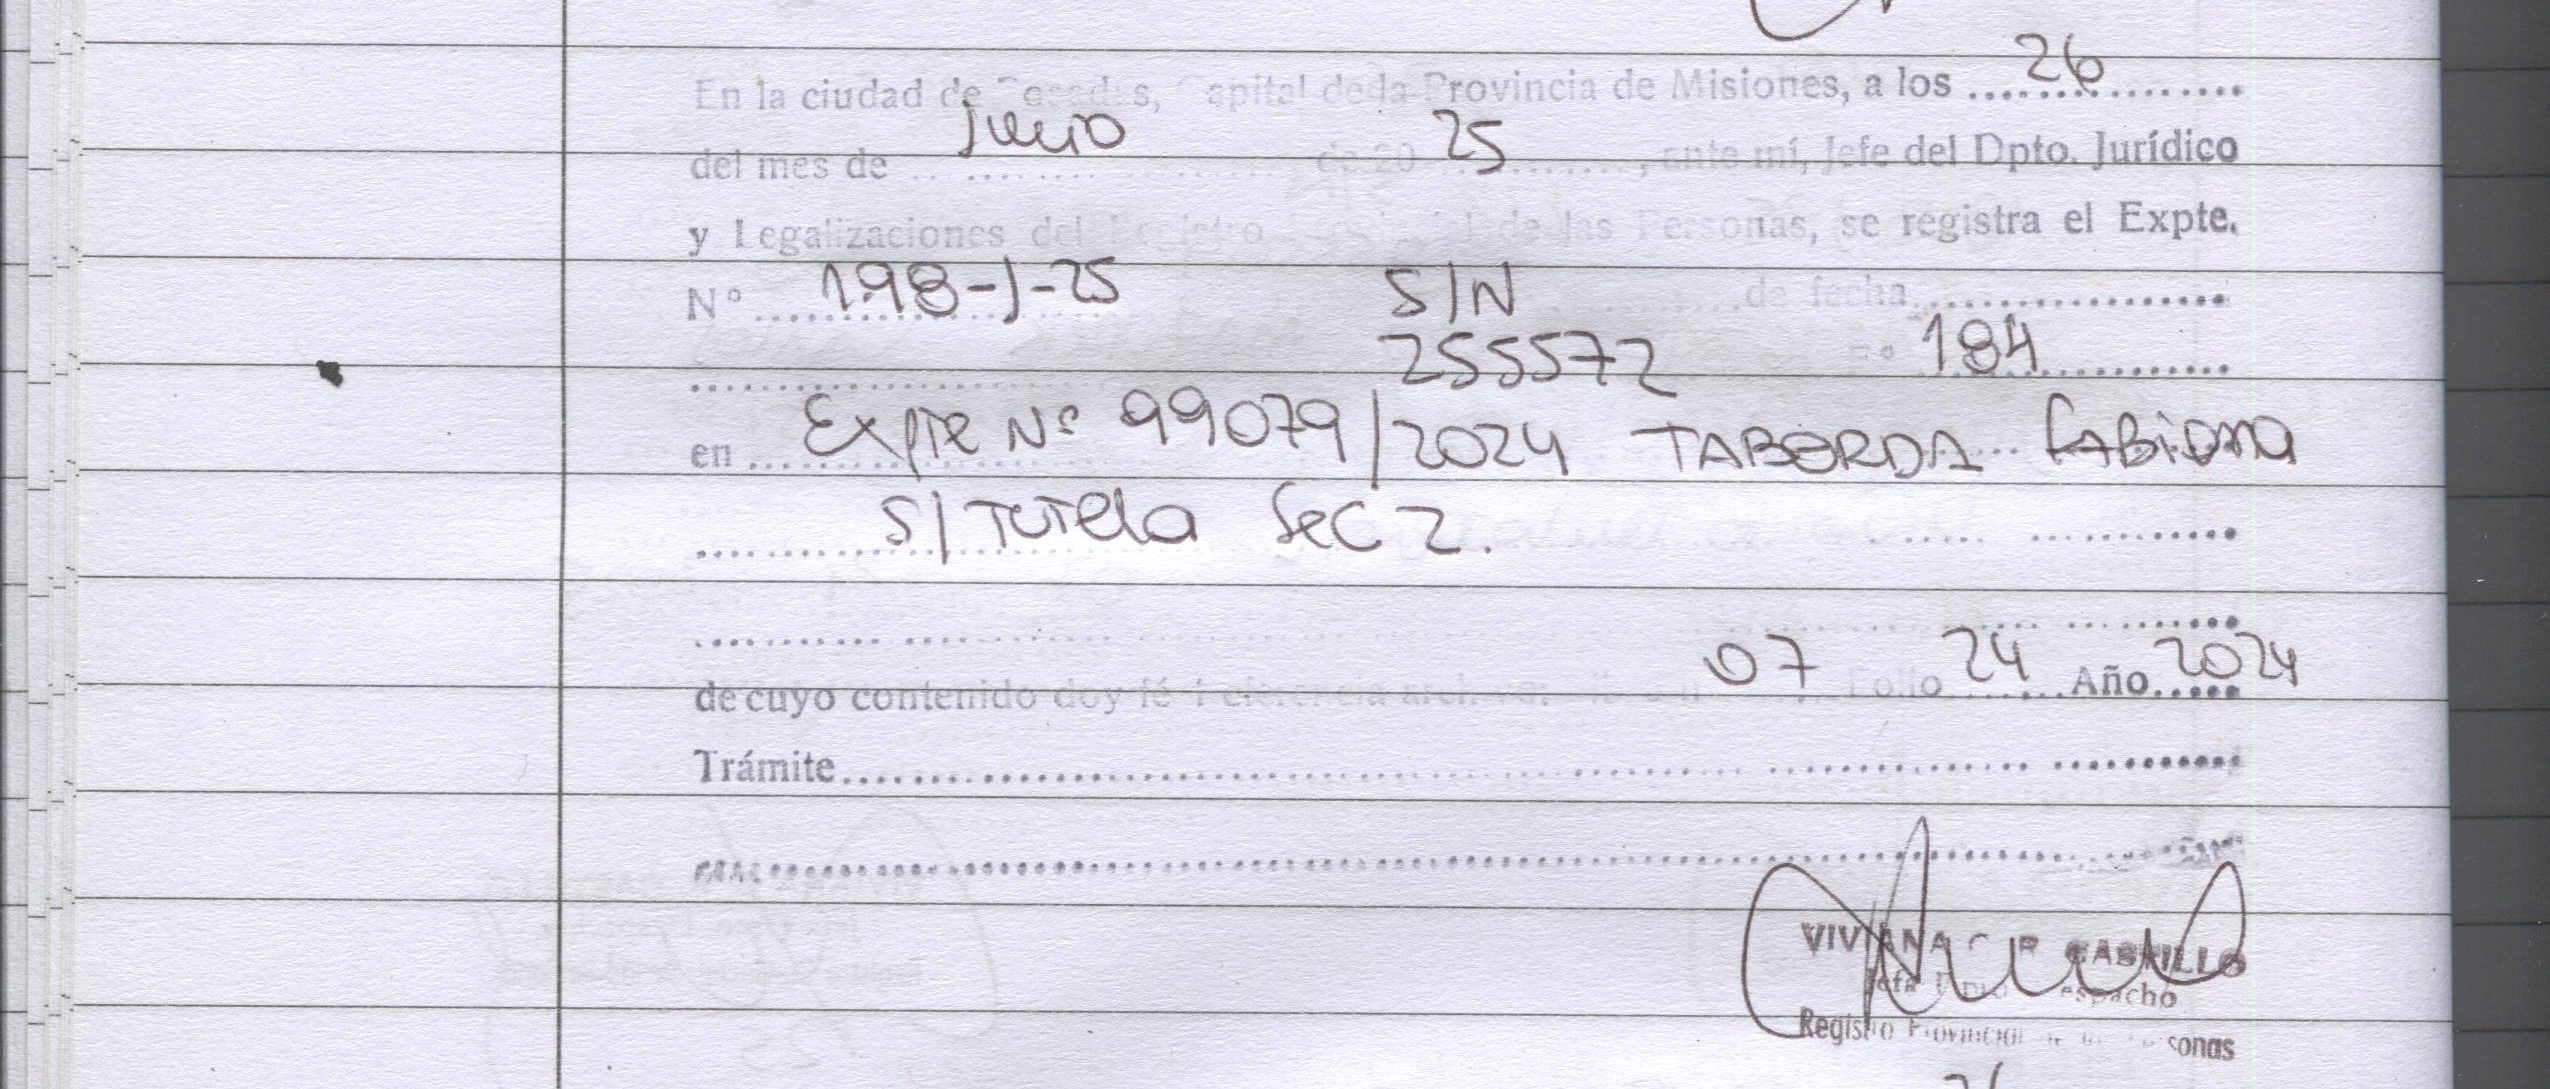 En la ciudad de Posadas, Capital de la Provincia de Misiones, a los 26
del mes de Junio de 20 25, ante mí, Jefe del Dpto. Jurídico
y Legalizaciones del Registro Provincial de las Personas, se registra el Expte.
N° 198-J-25 S/N de fecha
255572 N° 184
en Expte N° 99079/2024 TABORDA FABIANA
S/TUTela Sec 2.
07 24 2024
de cuyo contenido doy fé Referencia archivo: Folio Año
Trámite
VIVIANA C. R. CASTILLO
Jefa Dpto Despacho
Registro Provincial de las Personas